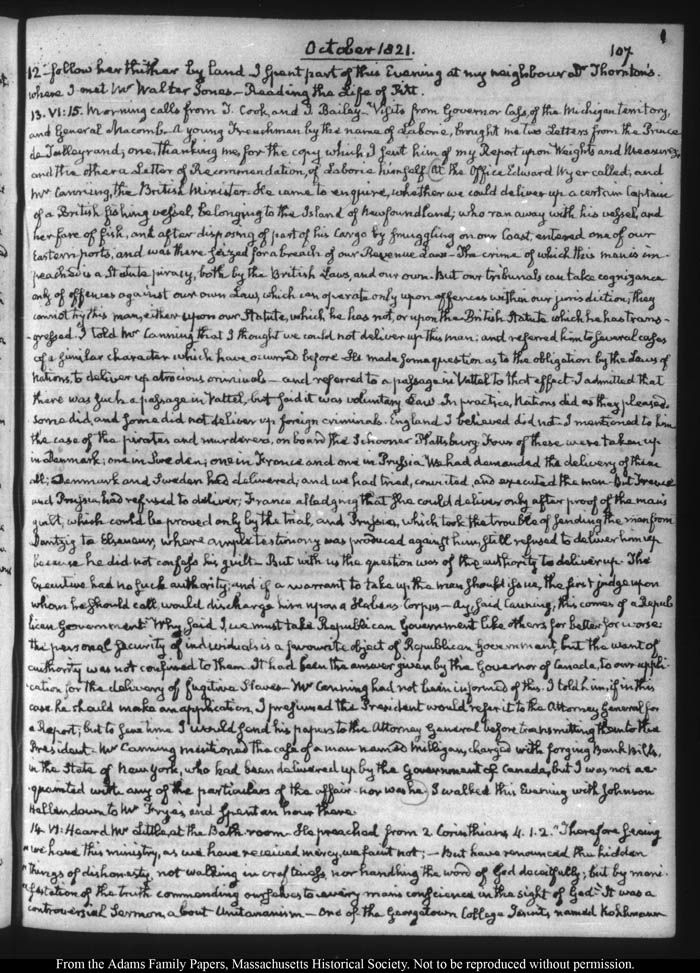 October 1821.
107
12 - follow her thither by land. I spent part of this Evening at my neighbour Dr Thornton's.
where I met Mr Walter Jones - Reading the Life of Pitt.
13. VI:15. Morning calls from J. Cook, and J. Bailey - Visits from Governor Cass, of the Michigan territory,
and General Macomb. A young Frenchman by the name of Laborie, brought me two Letters from the Prince
de Talleyrand; one, thanking me for the copy which I sent him of my Report upon Weights and Measures,
and the other a Letter of Recommendation, of Laborie himself. At the Office Edward Wyer called, and
Mr Canning, the British Minister. He came to enquire, whether we could deliver up a certain Captain
of a British fishing vessel, belonging to the Island of Newfoundland; who ran away with his vessel, and
her fare of fish, and after disposing of part of his Cargo by smuggling on our Coast, entered one of our
Eastern ports, and was there seized for a breach of our Revenue Laws - The crime of which this man is im-
peached is a Statute piracy, both by the British Laws, and our own. But our tribunals can take cognizance
only of offences against our own Laws, which can operate only upon offences within our jurisdiction; they
cannot try this man, either upon our Statute, which he has not, or upon the British Statute which he has trans-
-gressed. I told Mr Canning that I thought we could not deliver up this man; and referred him to several cases
of a similar character which have occurred before. He made some question as to the obligation by the Laws of
Nations, to deliver up atrocious criminals - and referred to a passage in Vattel to that effect. I admitted that
there was such a passage in Vattel, but said it was voluntary Law. In practice, Nations did as they pleased.
some did, and some did not deliver up foreign criminals. England I believed did not. I mentioned to him
the case of the pirates and murderers, on board the Schooner Plattsburg. Four of these were taken up
in Denmark; one in Sweden; one in France and one in Prussia. We had demanded the delivery of them
all; Denmark and Sweden had delivered, and we had tried, convicted, and executed the men - But France
and Prussia had refused to deliver; France alledging that she could deliver only after proof of the man's
guilt, which could be proved only by the trial, and Prussia, which took the trouble of sending the man from
Dantzig to Elsineur, where ample testimony was produced against him, still refused to deliver him up
because he did not confess his guilt - But with us the question was of the authority to deliver up. The
Executive had no such authority; and if a warrant to take up the man should issue, the first judge upon
whom he should call, would discharge him upon a Habeas Corpus - Ay, said Canning; this comes of a Repub-
lican Government. Why said I, we must take Republican Government like others for better for worse;
the personal security of individuals is a favourite object of Republican Government, but the want of
authority was not confined to them. It had been the answer given by the Governor of Canada, to our appli-
-cation for the delivery of fugitive Slaves - Mr Canning had not been informed of this. I told him, if in this
case he should make an application, I presumed the President would refer it to the Attorney General for
a Report; but to save time I would send his papers to the Attorney General before transmitting them to the
President. Mr Canning mentioned the case of a man named Milligan, charged with forging Bank Bills,
in the State of New York, who had been delivered up by the Government of Canada, but I was not ac-
quainted with any of the particulars of the affair. nor was he. I walked this Evening with Johnson
Hellen down to Mr Frye's and spent an hour there.
14. VI: Heard Mr Little, at the Bath room. He preached from 2 Corinthians 4. 1. 2. "Therefore seeing
"we have this ministry, as we have received mercy, we faint not; - But have renounced the hidden
"things of dishonesty, not walking in craftiness, nor handling the word of God deceitfully; but by mani-
"festation of the truth commending ourselves to every man's conscience in the sight of God." It was a
controversial Sermon, about Unitarianism - One of the Georgetown College Jesuits, named Kohlmann
From the Adams Family Papers, Massachusetts Historical Society. Not to be reproduced without permission.